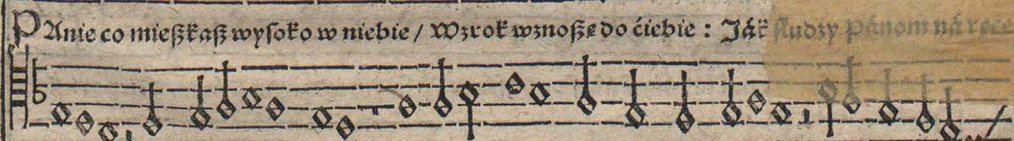 PAnie co mießkaß wysoko w niebie / Wzrok wznoßę do ćiebie : Ják słudzy Pánom ná ręce